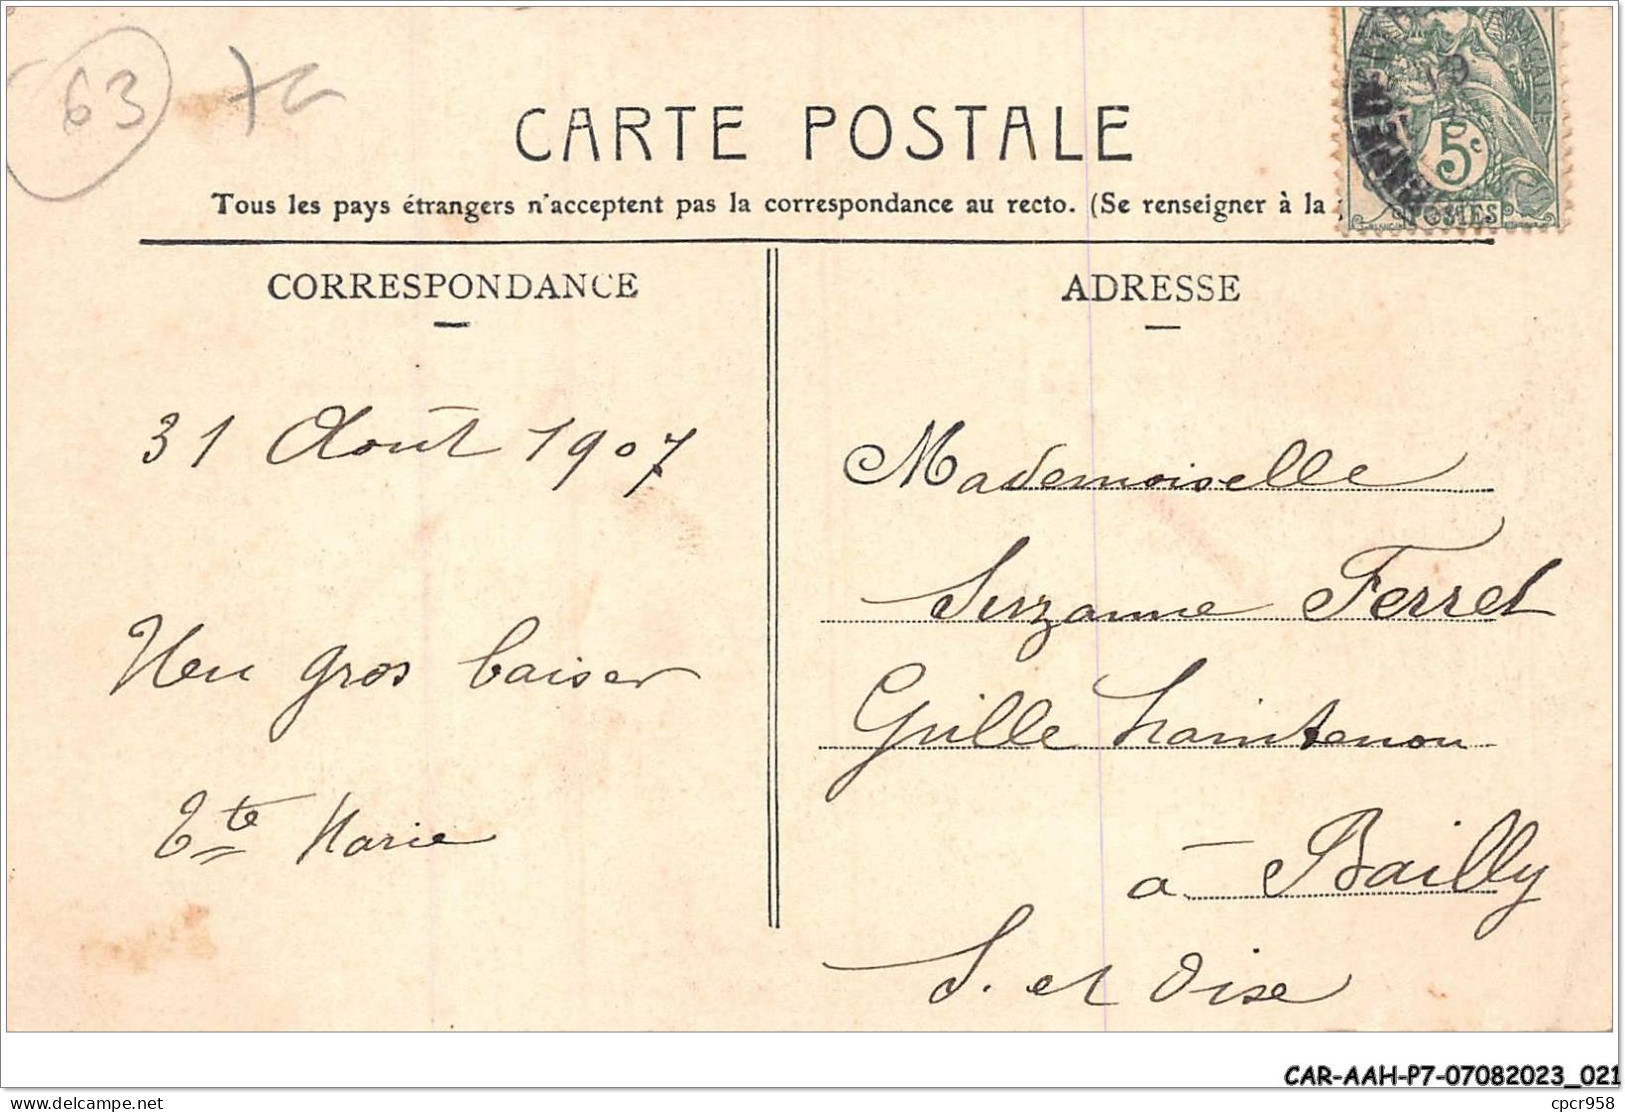 63
CARTE POSTALE
Tous les pays étrangers n'acceptent pas la correspondance au recto. (Se renseigner à la
5c
POSTES
CORRESPONDANCE
ADRESSE
31 Août 1907
Un gros baiser
Tte Marie
Mademoiselle
Suzanne Ferret
Grille Maintenon
à Bailly
S. et Oise
CAR-AAH-P7-07082023_021
delcampe.net
cpcr958